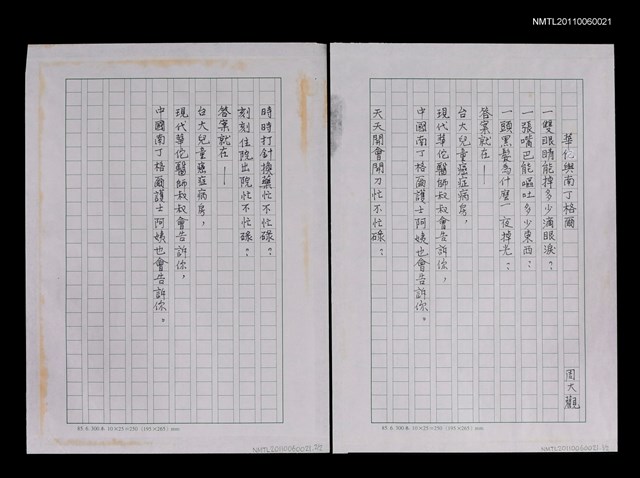 NMTL20110060021
華佗與南丁格爾
周大觀
一雙眼睛能掉多少滴眼淚？
一張嘴巴能嘔吐多少東西？
一頭黑髮為什麼一夜掉光？
答案就在——
台大兒童癌症病房，
現代華佗醫師叔叔會告訴你，
中國南丁格爾護士阿姨也會告訴你。
天天開會開刀忙不忙碌？
時時打針換藥忙不忙碌？
刻刻住院出院忙不忙碌？
答案就在——
台大兒童癌症病房，
現代華佗醫師叔叔會告訴你，
中國南丁格爾護士阿姨也會告訴你。